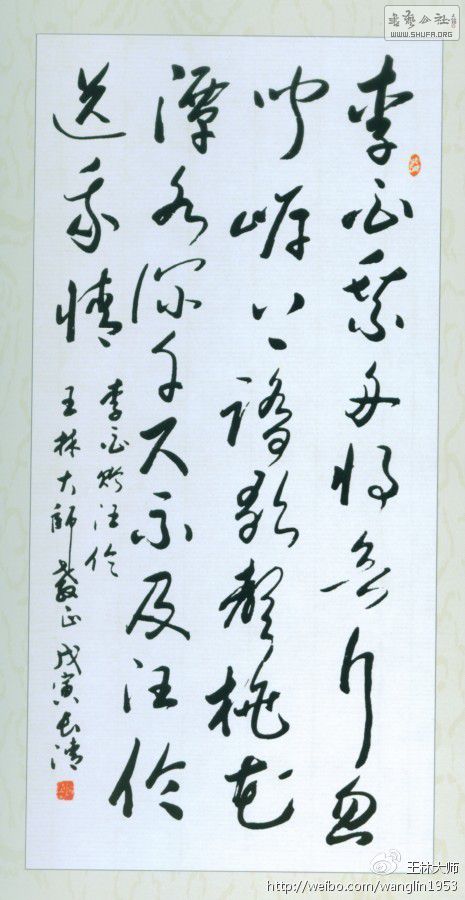 書藝公社
WWW.SHUFA.ORG
李白乘舟将欲行忽
闻岸上踏歌聲桃花
潭水深千尺不及汪伦
送我情
李白赠汪伦
王林大师教正 戊寅长清
王林大师
http://weibo.com/wanglin1953